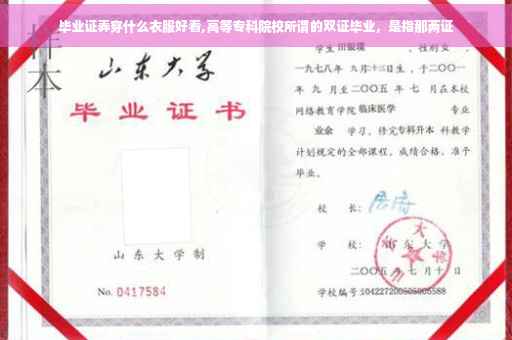 毕业证弄穿什么衣服好看,高等专科院校所谓的双证毕业，是指那两证
样本
山东大学
毕业证书
山东大学制
No. 0417584
学生
性别女，
一九七八年 九月十三日生，于二〇〇一
年 九 月至二〇〇五 年 七 月在本校
网络教育学院 临床医学 专业
业余 学习，修完专科升本 科教学
计划规定的全部课程，成绩合格，准予
毕业。
校 长：
学 校： 山东大学
二〇〇五 年 七 月 十 日
学校编号: